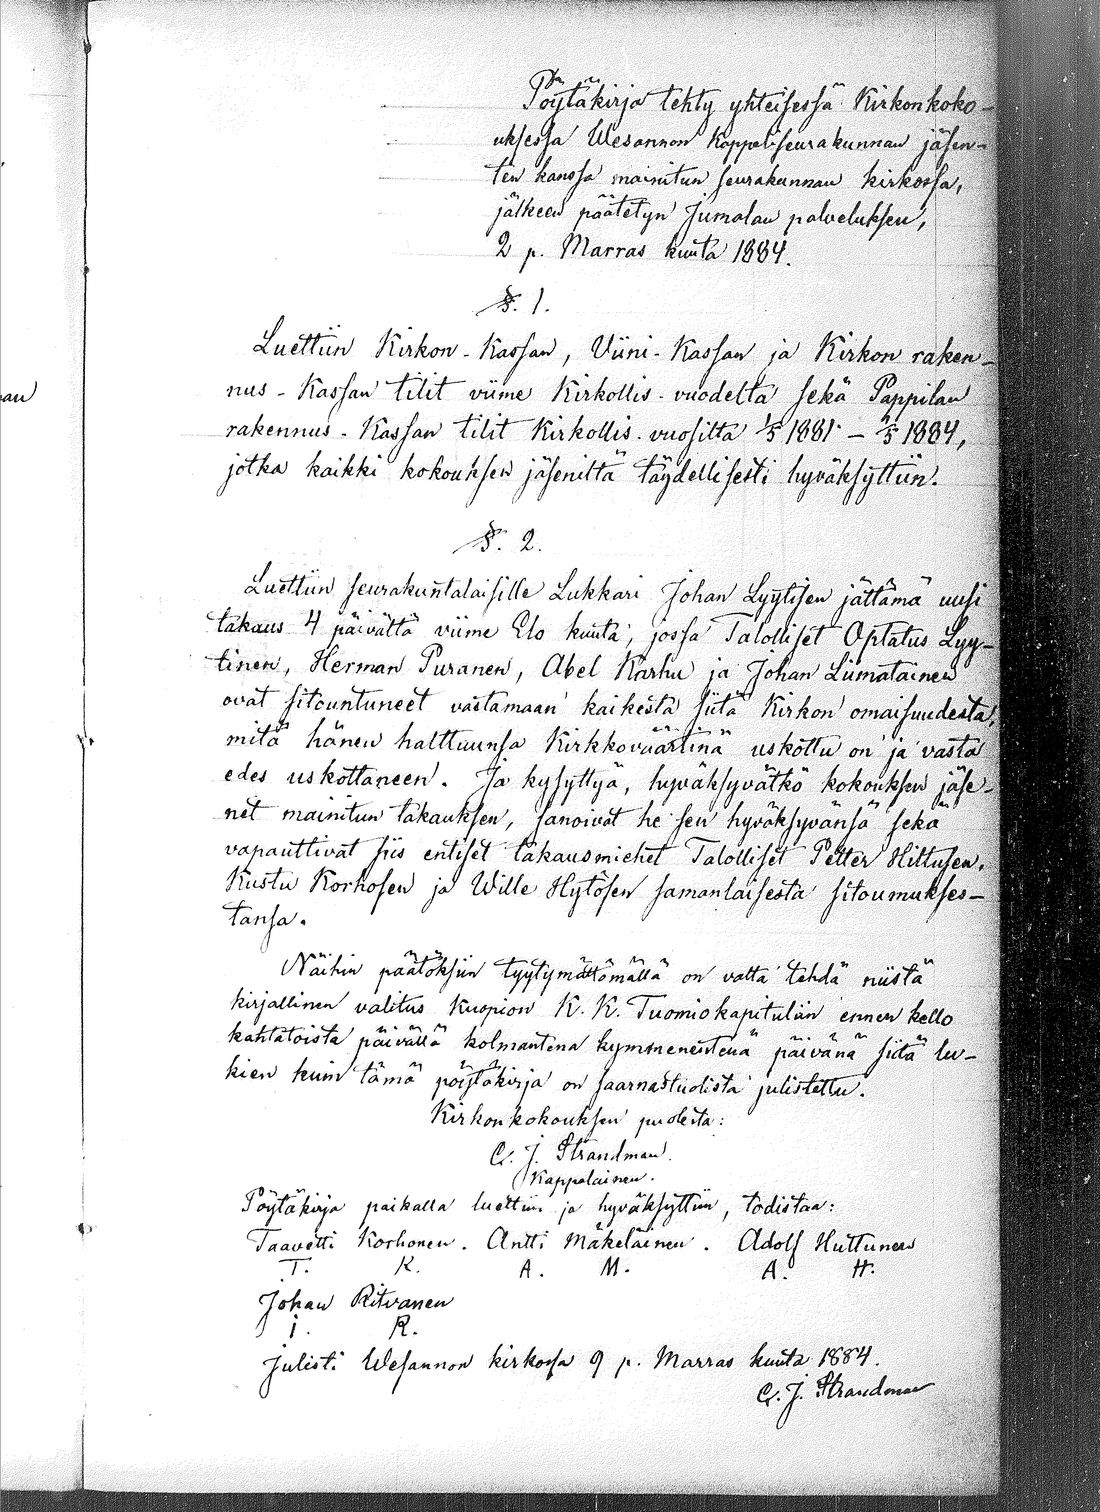 Pöytäkirja tehty yhteisessä Kirkonkoko-
uksessa Wesannon Kappeliseurakunnan jäsen-
ten kanssa mainitun seurakunnan kirkossa,
jälkeen päätetyn Jumalan palveluksen,
2 p. Marras kuuta 1884.
§. 1.
Luettiin Kirkon-Kassan, Viini-Kassan ja Kirkon raken-
nus-Kassan tilit viime Kirkollis-vuodelta sekä Pappilan
rakennus-Kassan tilit Kirkollis-vuosilta 1/5 1881 – 1/5 1884,
jotka kaikki kokouksen jäseniltä täydellisesti hyväksyttiin.
§. 2.
Luettiin seurakuntalaisille Lukkari Johan Lyytisen jättämä uusi
takaus 4 päivältä viime Elo kuuta, jossa Talolliset Optatus Lyy-
tinen, Herman Puranen, Abel Karhu ja Johan Liimatainen
ovat sitountuneet vastamaan kaikesta siitä Kirkon omaisuudesta,
mitä hänen halttuunsa Kirkkoväärtinä uskottu on ja vasta
edes uskottaneen. Ja kysyttyä, hyväksyvätkö kokouksen jäse-
net mainitun takauksen, sanoivat he sen hyväksyvänsä sekä
vapauttivat siis entiset takausmiehet Talolliset Petter Hiltusen,
Kustu Korhosen ja Wille Hytösen samanlaisesta sitoumukses-
tansa.
Näihin päätöksiin tyytymättömällä on valta tehdä niistä
kirjallinen valitus Kuopion K. K. Tuomiokapituliin ennen kello
kahtatoista päivällä kolmantena kymmenentenä päivänä siitä lu-
kien kuin tämä pöytäkirja on saarnastuolista julistettu.
Kirkonkokouksen puolesta:
C. J. Strandman.
Kappalainen.
Pöytäkirja paikalla luettiin ja hyväksyttiin, todistaa:
Taavetti Korhonen. Antti Mäkeläinen. Adolf Huttunen
T. K. A. M. A. H.
Johan Ritvanen
J. R.
Julisti Wesannon kirkossa 9 p. Marras kuuta 1884.
C. J. Strandman